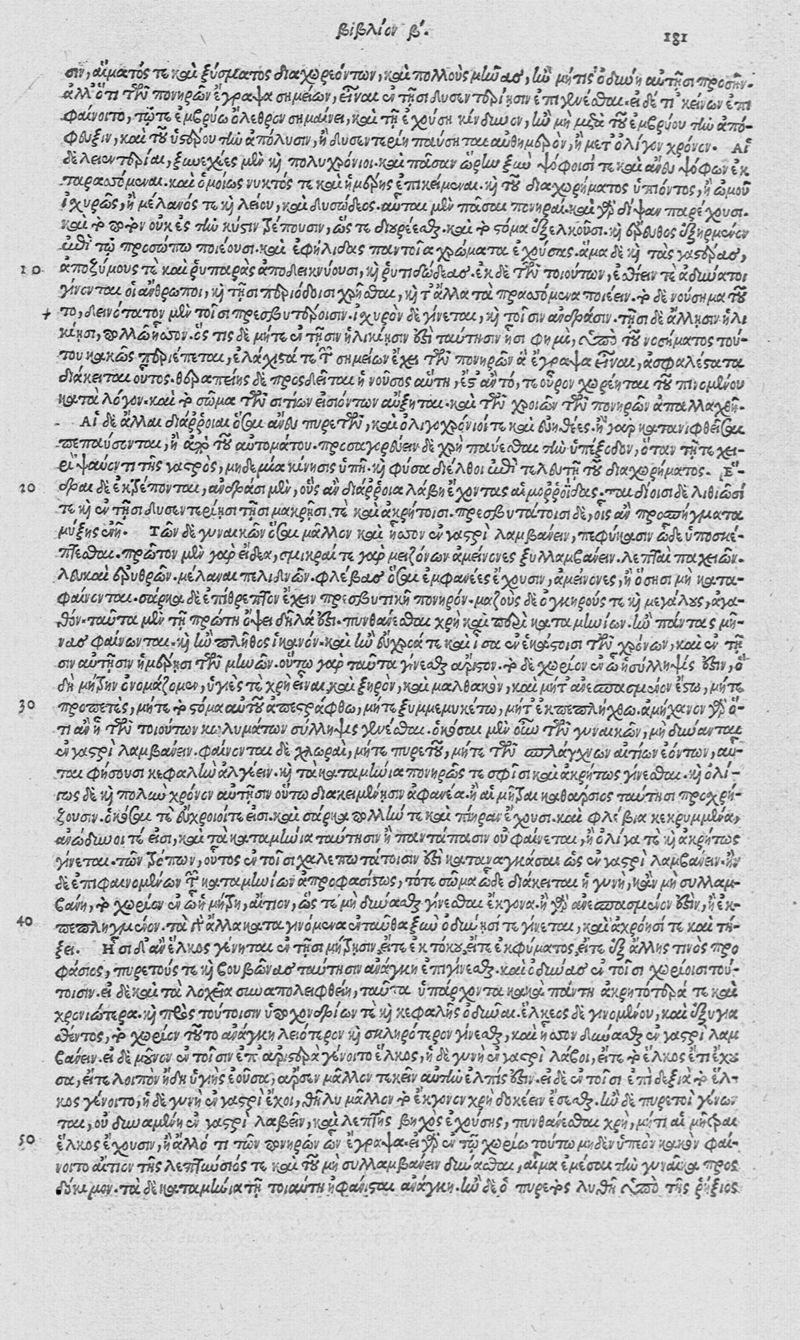 βιβλίον β΄. 181
σιν, αἵματός τε καὶ ξύσματος διαχωρεόντων, καὶ πολλοὺς μῆνας, ἢν μήτις ὀδύνη αὐτῇσι προσῇν.
ἀλλ' ὅτι τῶν πονηρῶν ἔγραψα σημείων, εἶναι ἐν τῇσι δυσεντερίῃσιν ἐπιγινέσθαι. εἰ δέ τι κείνων ἐπι
φαίνοιτο, τῷ τε ἐμβρύῳ ὄλεθρον σημαίνει, καὶ τῇ ἐχούσῃ κίνδυνον, ἢν μὴ μετὰ τοῦ ἐμβρύου τὴν ἀπό-
φευξιν, καὶ τοῦ ὑστέρου τὴν ἀπόλυσιν, ἡ δυσεντερίη παύσηται αὐθημερὸν, ἢ μετ' ὀλίγον χρόνον. Αἱ
δὲ λειεντερίαι, ξυνεχέες μὲν καὶ πολυχρόνιοι. καὶ πᾶσαν ὥρην ξὺν ψόφοισί τε καὶ ἄνευ ψόφων ἐκ
ταρασσόμεναι. καὶ ὁμοίως νυκτός τε καὶ ἡμέρης ἐπικείμεναι. καὶ τοῦ διαχωρήματος ὑπιόντος, ἢ ὠμοῦ
ἰχυρῶς, ἢ μέλανός τε καὶ λείου, καὶ δυσώδεος. αὗται μὲν πᾶσαι πονηραί. καὶ γὰρ δίψαν παρέχουσι.
καὶ τὸ ποτὸν οὐκ ἐς τὴν κύστιν τρέπουσιν, ὥς τε διουρέεσθαι. καὶ τὸ στόμα ἐξελκοῦσι. καὶ ἔρευθος ἐξηρμένον
ἐπὶ τῷ προσώπῳ ποιέουσι. καὶ ἐφηλίδας παντοῖα χρώματα ἐχούσας. ἅμα δὲ καὶ τὰς γαστέρας,
10 ἀποζύμους τὲ καὶ ῥυπαρὰς ἀποδεικνύουσι, καὶ ῥυτιδώδεας. ἐκ δὲ τῶν τοιούτων, ἐσθίειν τε ἀδύνατοι
γίνονται οἱ ἄνθρωποι, καὶ τῇσι περιόδοισι χρῆσθαι, καὶ τ' ἄλλα τὰ προστασσόμενα ποιέειν. τὸ δὲ νούσημα τοῦ
+ το, δεινότατον μὲν τοῖσι πρεσβυτέροισιν. ἰχυρὸν δὲ γίνεται, καὶ τοῖσιν ἀνδράσιν. τῇσι δὲ ἄλλῃσιν ἡλι
κίῃσι, πολλῷ ἧσσον. ὅς τις δὲ μήτε ἐν τῇσιν ἡλικίῃσιν ἐστὶ ταύτῃσιν ᾗσι φημὶ, ὑπὸ τοῦ νοσήματος τού-
του κακῶς περιέπεται, ἐλάχιστά τε τῶν σημείων ἔχει τῶν πονηρῶν ἃ ἔγραψα εἶναι, ἀσφαλέστατα
διάκειται οὗτος. θεραπείης δὲ προσδεῖται ἡ νοῦσος αὕτη, ἐς αὐτὸ, τε οὖρον χωρέηται τοῦ πινομένου
κατὰ λόγον. καὶ τὸ σῶμα τῶν σιτίων εἰσιόντων αὔξηται. καὶ τῶν χροιῶν τῶν πονηρῶν ἀπαλλαχθῇ.
Αἱ δὲ ἄλλαι διάῤῥοιαι ὅσαι ἄνευ πυρετῶν, καὶ ὀλιγοχρόνιοί τε καὶ εὐήθεες. ἢ γὰρ κατανιφθεῖσαι
πεπαύσονται, ἢ ἀπὸ τοῦ αὐτομάτου. προσαγορεύειν δὲ χρὴ παύεσθαι τὴν ὑπέξοδον, ὅταν τῇ τε χει-
ρὶ ψαύοντι τῆς γαστρὸς, μηδεμία κίνησις ὑπῇ. καὶ φῦσα διέλθοι ἐπὶ τελευτῇ τοῦ διαχωρήματος. Ἕ-
20 δραι δὲ ἐκτρέπονται, ἀνδράσι μὲν, οὓς ἂν διάῤῥοια λάβῃ ἔχοντας αἱμοῤῥοΐδας. παιδίοισι δὲ λιθιῶσί
τε καὶ ἐν τῇσι δυσεντερίῃσι τῇσι μακρῇσί. τε καὶ ἀκρήτοισι. πρεσβυτάτοισι δὲ, οἷς ἂν προσπήγματα
μύξης ἐῇ. Τῶν δὲ γυναικῶν ὅσαι μᾶλλον καὶ ἧσσον ἐν γαστρὶ λαμβάνειν, πεφύκασιν ὧδε ὑποσκέ-
πτεσθαι. πρῶτον μὲν γὰρ εἴδεα, σμικραί τε γὰρ μειζόνων ἀμείνονες ξυλλαμβάνειν. λεπταὶ παχειῶν.
λευκαὶ ἐρυθρῶν. μέλαιναι πελιδνῶν. φλέβας ὅσαι ἐμφανέες ἔχουσιν, ἀμείνονες, ἢ ὅσῃσι μὴ κατα-
φαίνονται. σάρκα δὲ ἐπίθρεπτον ἔχειν πρεσβυτικῇ πονηρόν. μαζοὺς δὲ ὀγκηροὺς τε καὶ μεγάλους, ἀγα-
θόν. ταῦτα μὲν τῇ πρώτῃ ὄψει δῆλά ἐστι. πυνθάνεσθαι χρὴ καὶ περὶ καταμηνίων. ἢν πάντας μῆ-
νας φαίνωνται. καὶ ἢν πλῆθος ἱκανόν. καὶ ἢν εὔχροά τε καὶ ἴσα ἐν ἑκάστοισι τῶν χρόνων, καὶ ἐν τῇ-
σιν αὐτῇσιν ἡμέρῃσι τῶν μηνῶν. οὕτω γὰρ ταῦτα γίνεσθαι ἄριστον. τὸ δὲ χωρίον ἐν ᾧ ἡ σύλληψίς ἐστιν, ὃ
δὴ μήτρην ὀνομάζομεν, ὑγιές τε χρὴ εἶναι, καὶ ξηρὸν, καὶ μαλθακὸν, καὶ μήτ' ἀνεσπασμένον ἔστω, μήτε
30 προπετὲς, μήτε τὸ στόμα αὐτοῦ ἀπεστράφθω, μήτε ξυμμεμυκέτω, μήτ' ἐκπεπλήχθω. ἀμήχανον γὰρ ὅ-
τι ἂν ᾖ τῶν τοιούτων κωλυμάτων σύλληψις γινέσθαι. ὁκόσαι μὲν οὖν τῶν γυναικῶν, μὴ δύνανται
ἐν γαστρὶ λαμβάνειν. φαίνονται δὲ χλωραὶ, μήτε πυρετοῦ, μήτε τῶν σπλάγχνων αἰτίων ἐόντων, αὗ-
ται φήσουσι κεφαλὴν ἀλγέειν. καὶ τὰ καταμήνια πονηρῶς τε σφίσι καὶ ἀκρήτως γίνεσθαι. καὶ ὀλί-
τως δὲ καὶ πολὺν χρόνον αὐτῇσιν οὕτω διακειμένῃσιν ἀφανέα. ἢ αἱ μῆτραι καθαρσίος ταύτῃσι προσχρῄ-
ζουσιν. ὁκόσαι τε εὔχροιοί τε εἰσι. καὶ σάρκα πολλήν τε καὶ πίηραν ἔχουσι. καὶ φλέβια κεκρυμμένα,
ἀνώδυνοι τέ εἰσι, καὶ τὰ καταμήνια ταύτῃσιν ἢ παντάπασιν οὐ φαίνεται, ἢ ὀλίγα τε καὶ ἀκρήτως
γίνεται. τῶν τρόπων, οὗτος ἐν τοῖσι χαλεπωτάτοισιν ἐστὶ καταναγκάσαι ὡς ἐν γαστρὶ λαμβάνειν. ἢν
δὲ ἐπιφαινομένων τῶν καταμηνίων ἀπροφασίστως, τότε σῶμα ὧδε διάκειται ἡ γυνὴ, κἢν μὴ συλλαμ-
βάνῃ, τὸ χωρίον ἐν ᾧ ἡ μήτρη, αἴτιον, ὥς τε μὴ δύνασθαι γίνεσθαι ἔκγονα. ἢ γὰρ ἀνεσπασμένον ἐστὶν, ἢ ἐκ-
40 πεπληγμένον. τὰ γὰρ ἄλλα κατὰ γινόμενα ἐνταῦθα ξὺν ὀδύνῃσί τε γίνεται, καὶ ἀχροῇσί τε καὶ τή-
ξει. Ἧσι δ' ἂν ἕλκος γένηται ἐν τῇσι μήτρῃσιν, εἴτε ἐκ τόκου, εἴτε ἐκ φύματος, εἴτε ἐξ ἄλλης τινὸς προ
φάσιος, πυρετούς τε καὶ βουβῶνας ταύτῃσιν ἀνάγκη ἐπιγίνεσθαι. καὶ ὀδύνας ἐν τοῖσι χωρίοισι τού-
τοισιν. εἰ δὲ καὶ τὰ λοχεῖα συναπολειφθείη, ταῦτα ὑπάρχοντα κακὰ πάντῃ ἀκρητότερά τε καὶ
χρονιώτερα. καὶ πρὸς τούτοισιν ὑποχονδρίων τε καὶ κεφαλῆς ὀδύναι. ἕλκεος δὲ γινομένου, καὶ ἐξυγια
σθέντος, τὸ χωρίον τοῦτο ἀνάγκη λειότερον καὶ σκληρότερον γίνεσθαι, καὶ ἧσσον δύνασθαι ἐν γαστρὶ λαμ
βάνειν. εἰ δὲ μοῦνον ἐν τοῖσιν ἐπ' ἀριστερὰ γένοιτο ἕλκος, ἡ δὲ γυνὴ ἐν γαστρὶ λάβοι, εἴτε τὸ ἕλκος ἔτι ἔχου
σα, εἴτε λοιπὸν ἤδη ὑγιὴς ἐοῦσα, ἄρσεν μᾶλλον τεκεῖν αὐτὴν ἐλπίς ἐστιν. εἰ δὲ ἐν τοῖσι ἐπὶ δεξιὰ τὸ ἕλ-
κος γένοιτο, ἡ δὲ γυνὴ ἐν γαστρὶ ἔχοι, θῆλυ μᾶλλον τὸ ἔκγονον χρὴ δοκέειν ἔσεσθαι. ἢν δὲ πυρετοὶ γένων
ται, οὐ δυναμένῃ ἐν γαστρὶ λαβεῖν, καὶ λεπτῆς βηχὸς ἐχούσης, πυνθάνεσθαι χρὴ, μή τι αἱ μῆτραι
50 ἕλκος ἔχουσιν, ἢ ἄλλό τι τῶν πονηρῶν ὧν ἔγραψα. εἰ γὰρ ἐν τῷ χωρίῳ τούτῳ μηδὲν ὑπεὸν κακὸν φαί-
νοιτο αἴτιον τῆς λεπτύνσιός τε καὶ τοῦ μὴ συλλαμβάνειν δύνασθαι, αἷμα ἐμέσαι τὴν γυναῖκα προς
δόκιμον. τὰ δὲ καταμήνια τῇ τοιαύτῃ ἠφανίσται ἀνάγκη. ἢν δὲ ὁ πυρετὸς λυθῇ ὑπὸ τῆς ῥήξιος